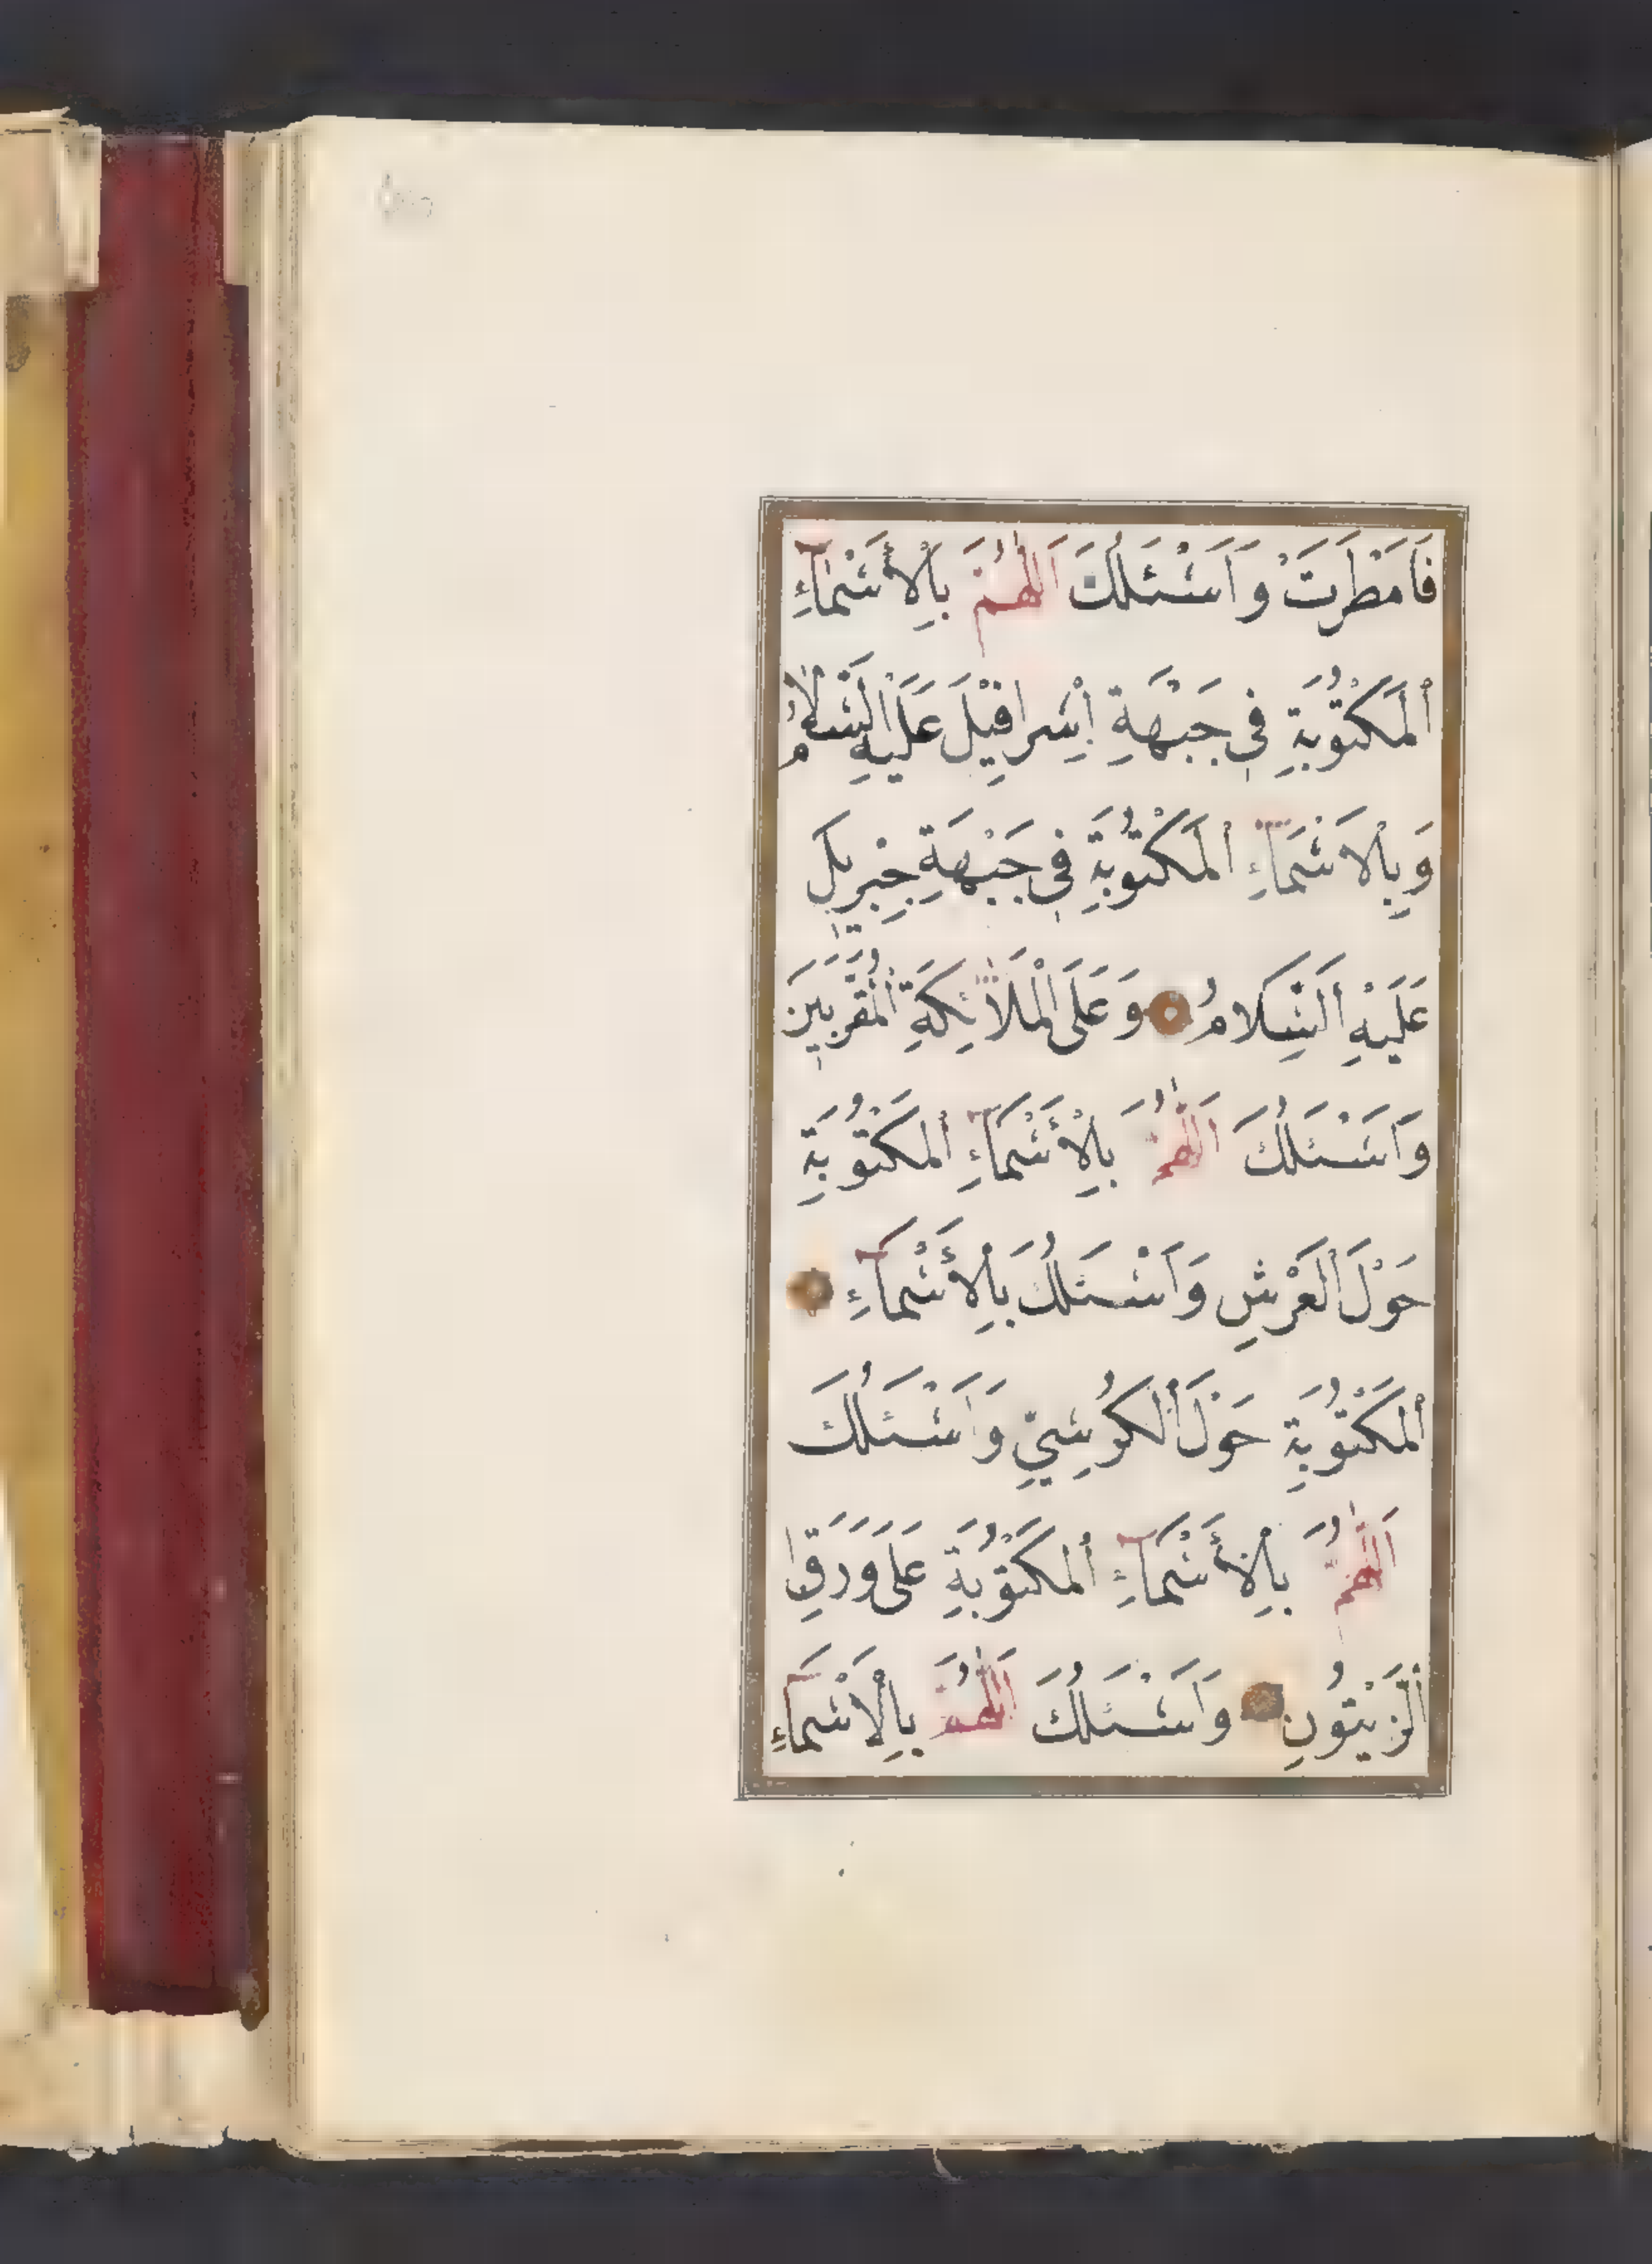 فَاَمْطَرَتْ وَاَسْئَلُكَ اَللّٰهُمَّ بِالْأَسْمَآءِ
اَلْمَكْتُوبَةِ فِى جَبْهَةِ اِسْرَافِيْلَ عَلَيْهِ السَّلَامُ
وَبِالْاَسْمَآءِ الْمَكْتُوبَةِ فِى جَبْهَةِ جِبْرِيلَ
عَلَيْهِ اَلسَّلَامُ وَعَلَى الْمَلَآئِكَةِ الْمُقَرَّبِينَ
وَاَسْئَلُكَ اَللّٰهُمَّ بِالْأَسْمَآءِ اَلْمَكْتُوبَةِ
حَوْلَ الْعَرْشِ وَاَسْئَلُكَ بِالْأَسْمَآءِ
اَلْمَكْتُوبَةِ حَوْلَ الْكُرْسِيِّ وَاَسْئَلُكَ
اَللّٰهُمَّ بِالْأَسْمَآءِ اَلْمَكْتُوبَةِ عَلَى وَرَقِ
اَلزَّيْتُونِ وَاَسْئَلُكَ اَللّٰهُمَّ بِالْاَسْمَآءِ